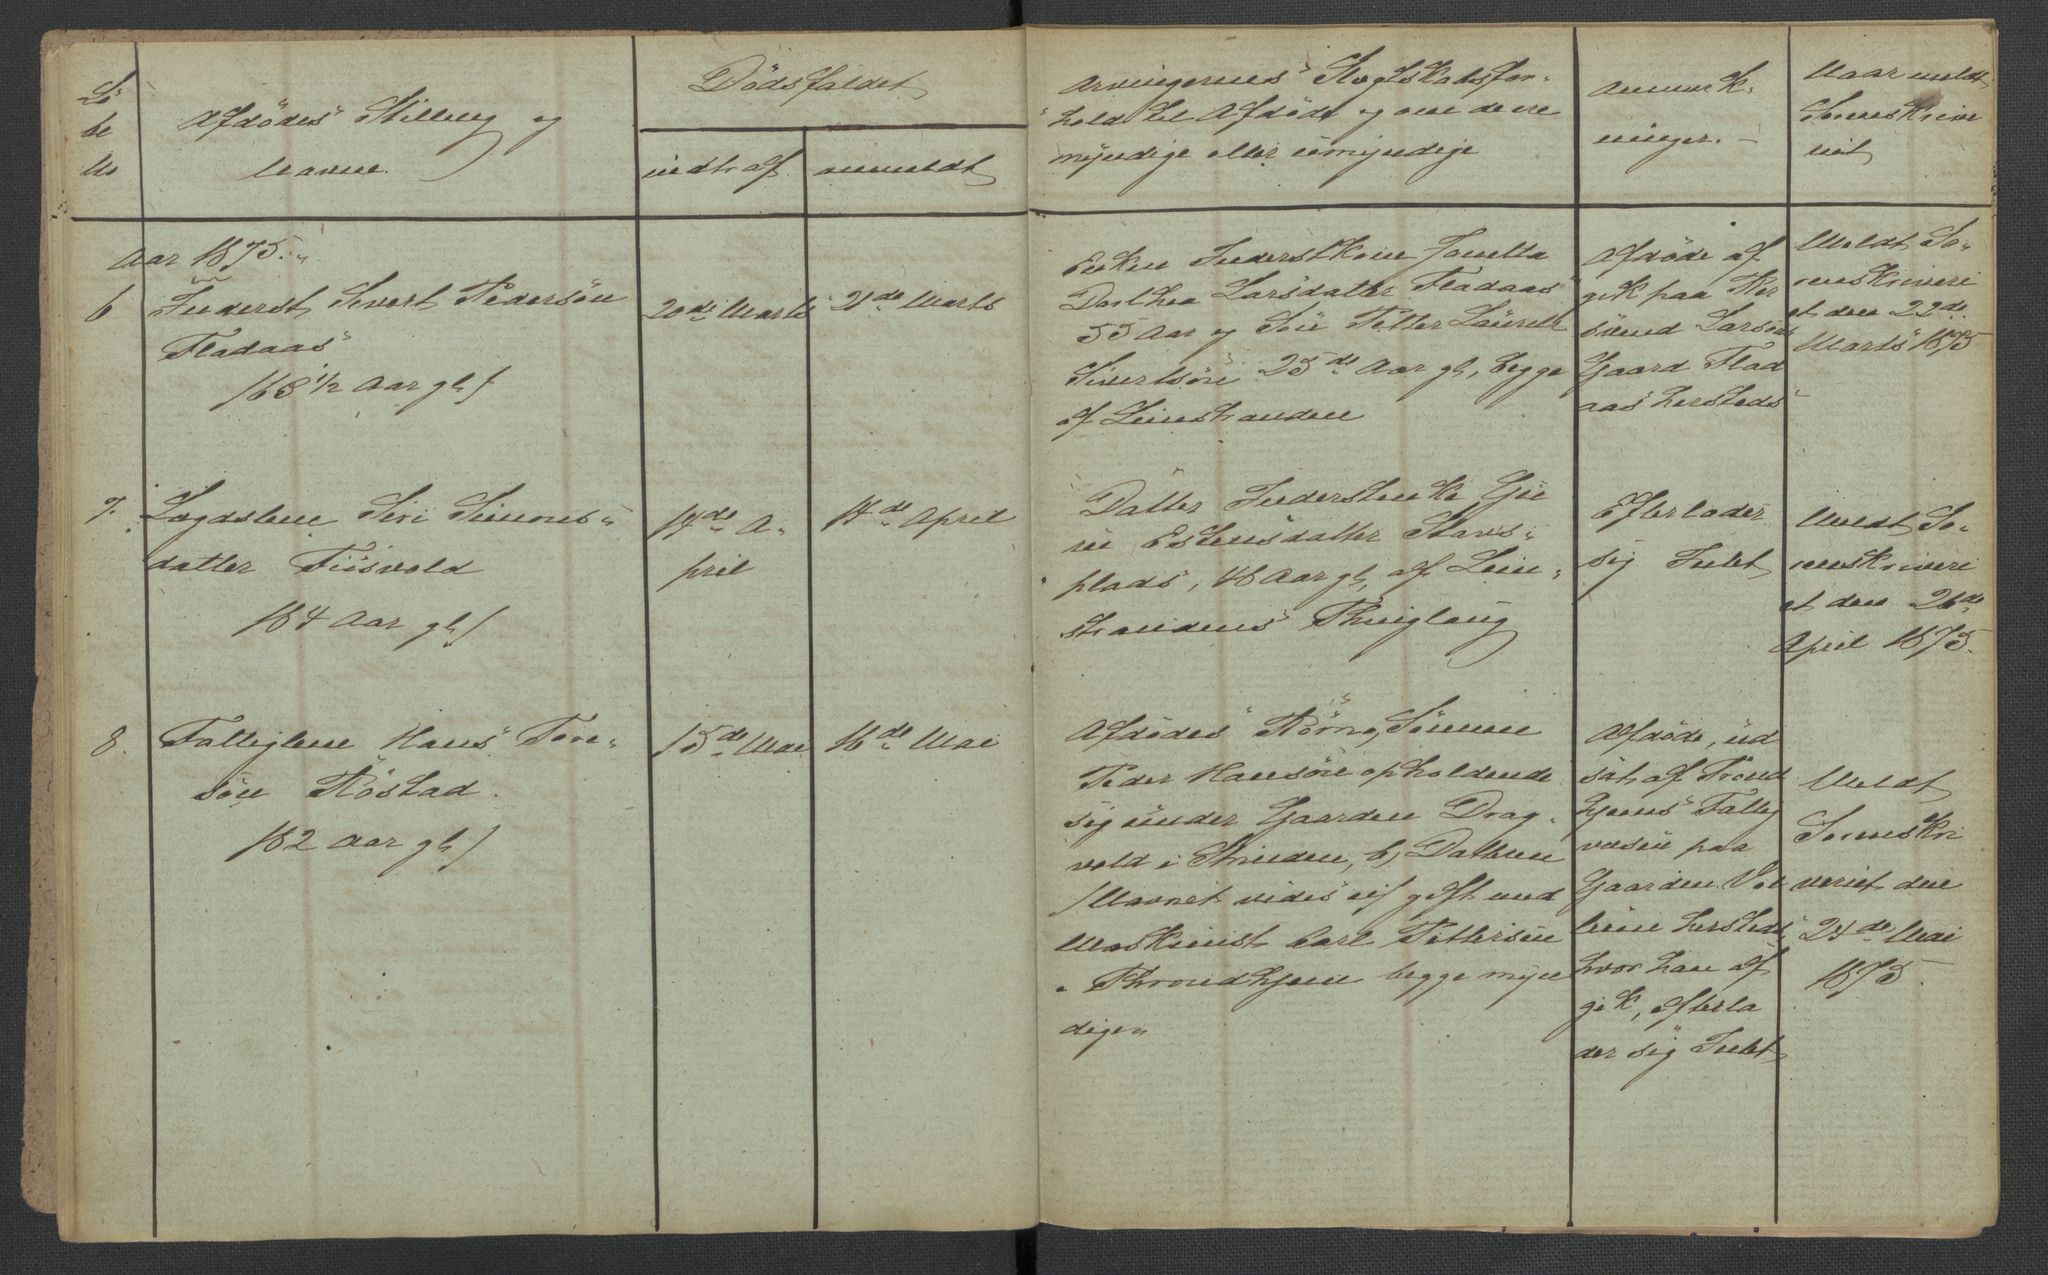 Lö
be
No
Afdödes Stilling og
Navne.
Dödsfaldet
indtraf.
anmeldt
Arvingernes Slegtskabsfor-
hold til Afdöde og om de ere
myndige eller umyndige
Anmærk-
ninger. -
Naar meldt
Sorenskrive
riet
Aar 1875.
6
Inderst Sivert Pedersön
Fladaas
/68 1/2 Aar gl/
20de Marts
21de Marts
Enken Inderstkone Jonetta
Dorthea Larsdatter Fladaas
55 Aar og Sön Petter Laurits
Sivertsön 25de Aar gl, begge
af Leinstranden
Afdöde af
gik paa
Larsens
Gaard Flad
aas hersteds
Meldt So-
renskriveri
et den 22de
Marts 1875
7.
Lægdslem Siri Simons-
datter Fiisvold
/84 Aar gl/
14de A-
pril
14de April
Datter Inderstenke Gu
ru Estensdatter Stavs-
plads, 48 Aar gl, af Lein-
strandens Thinglaug
Efterlader
sig Intet
Meldt So-
renskriveri
et den 26de
April 1875.
8.
Fattiglem Hans Tore-
sön Röstad.
/82 Aar gl/
15de Mai
16de Mai
Afdödes Börn, Sönnen
Peder Hansön opholdende
sig under Gaarden Drag-
vold i Strinden, b, Datteren
/Navnet vides ei/ gift med
Maskinist Carl Pettersen
Throndhjem begge myn
dige
Afdöde, ud
sat af Trond
hjems Fattig
væsen paa
Gaarden
hersteds
hvor han af
gik, efterla
der sig Intet
Meldt
Sorenskri
veriet den
24de Mai
1875.